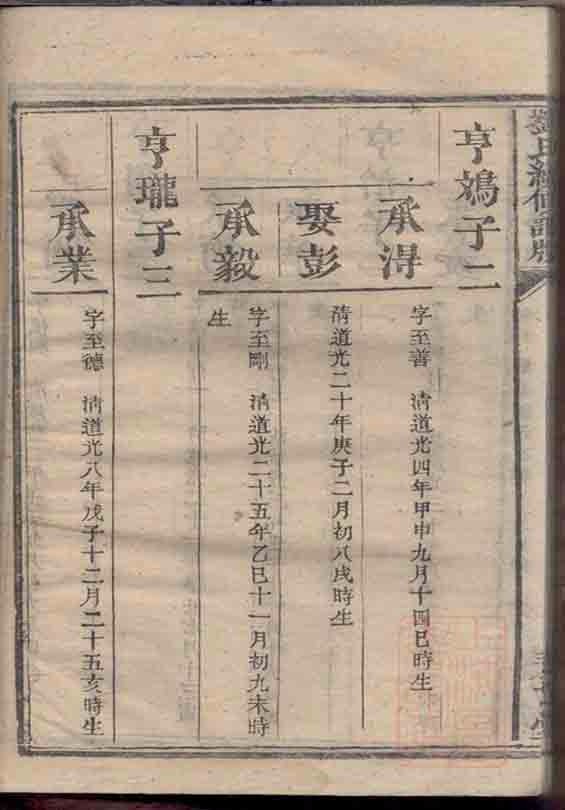 亨鴆子二
承淂
字至善 清道光四年甲申九月十四巳時生
娶彭
清道光二十年庚子二月初八戌時生
承毅
字至剛 清道光二十五年乙巳十一月初九未時
生
亨瓏子三
承業
字至德 清道光八年戊子十二月二十五亥時生